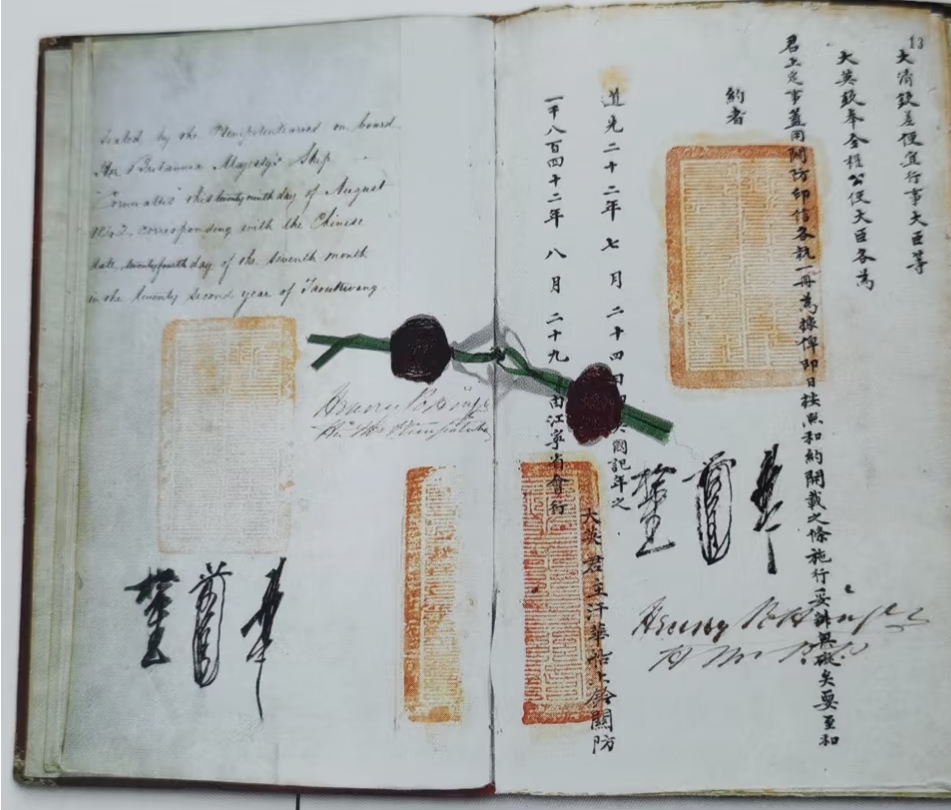 Sealed by the Plenipotentiaries on board
Her Britannic Majesty's Ship
Cornwallis this twenty ninth day of August
1842, corresponding with the Chinese
date, twenty fourth day of the seventh month
in the twenty second year of Taoukwang.
Henry Pottinger
13
大清欽差便宜行事大臣等
大英欽奉全權公使大臣各為
君上定事蓋用關防印信各執一冊為據俾即日按照和約開載之條施行妥辦無礙矣要至和
約者
道光二十二年七月二十四日即英國記年之
一千八百四十二年八月二十九日由江寧省會行
大英君主汗華船上鈐關防
Henry Pottinger